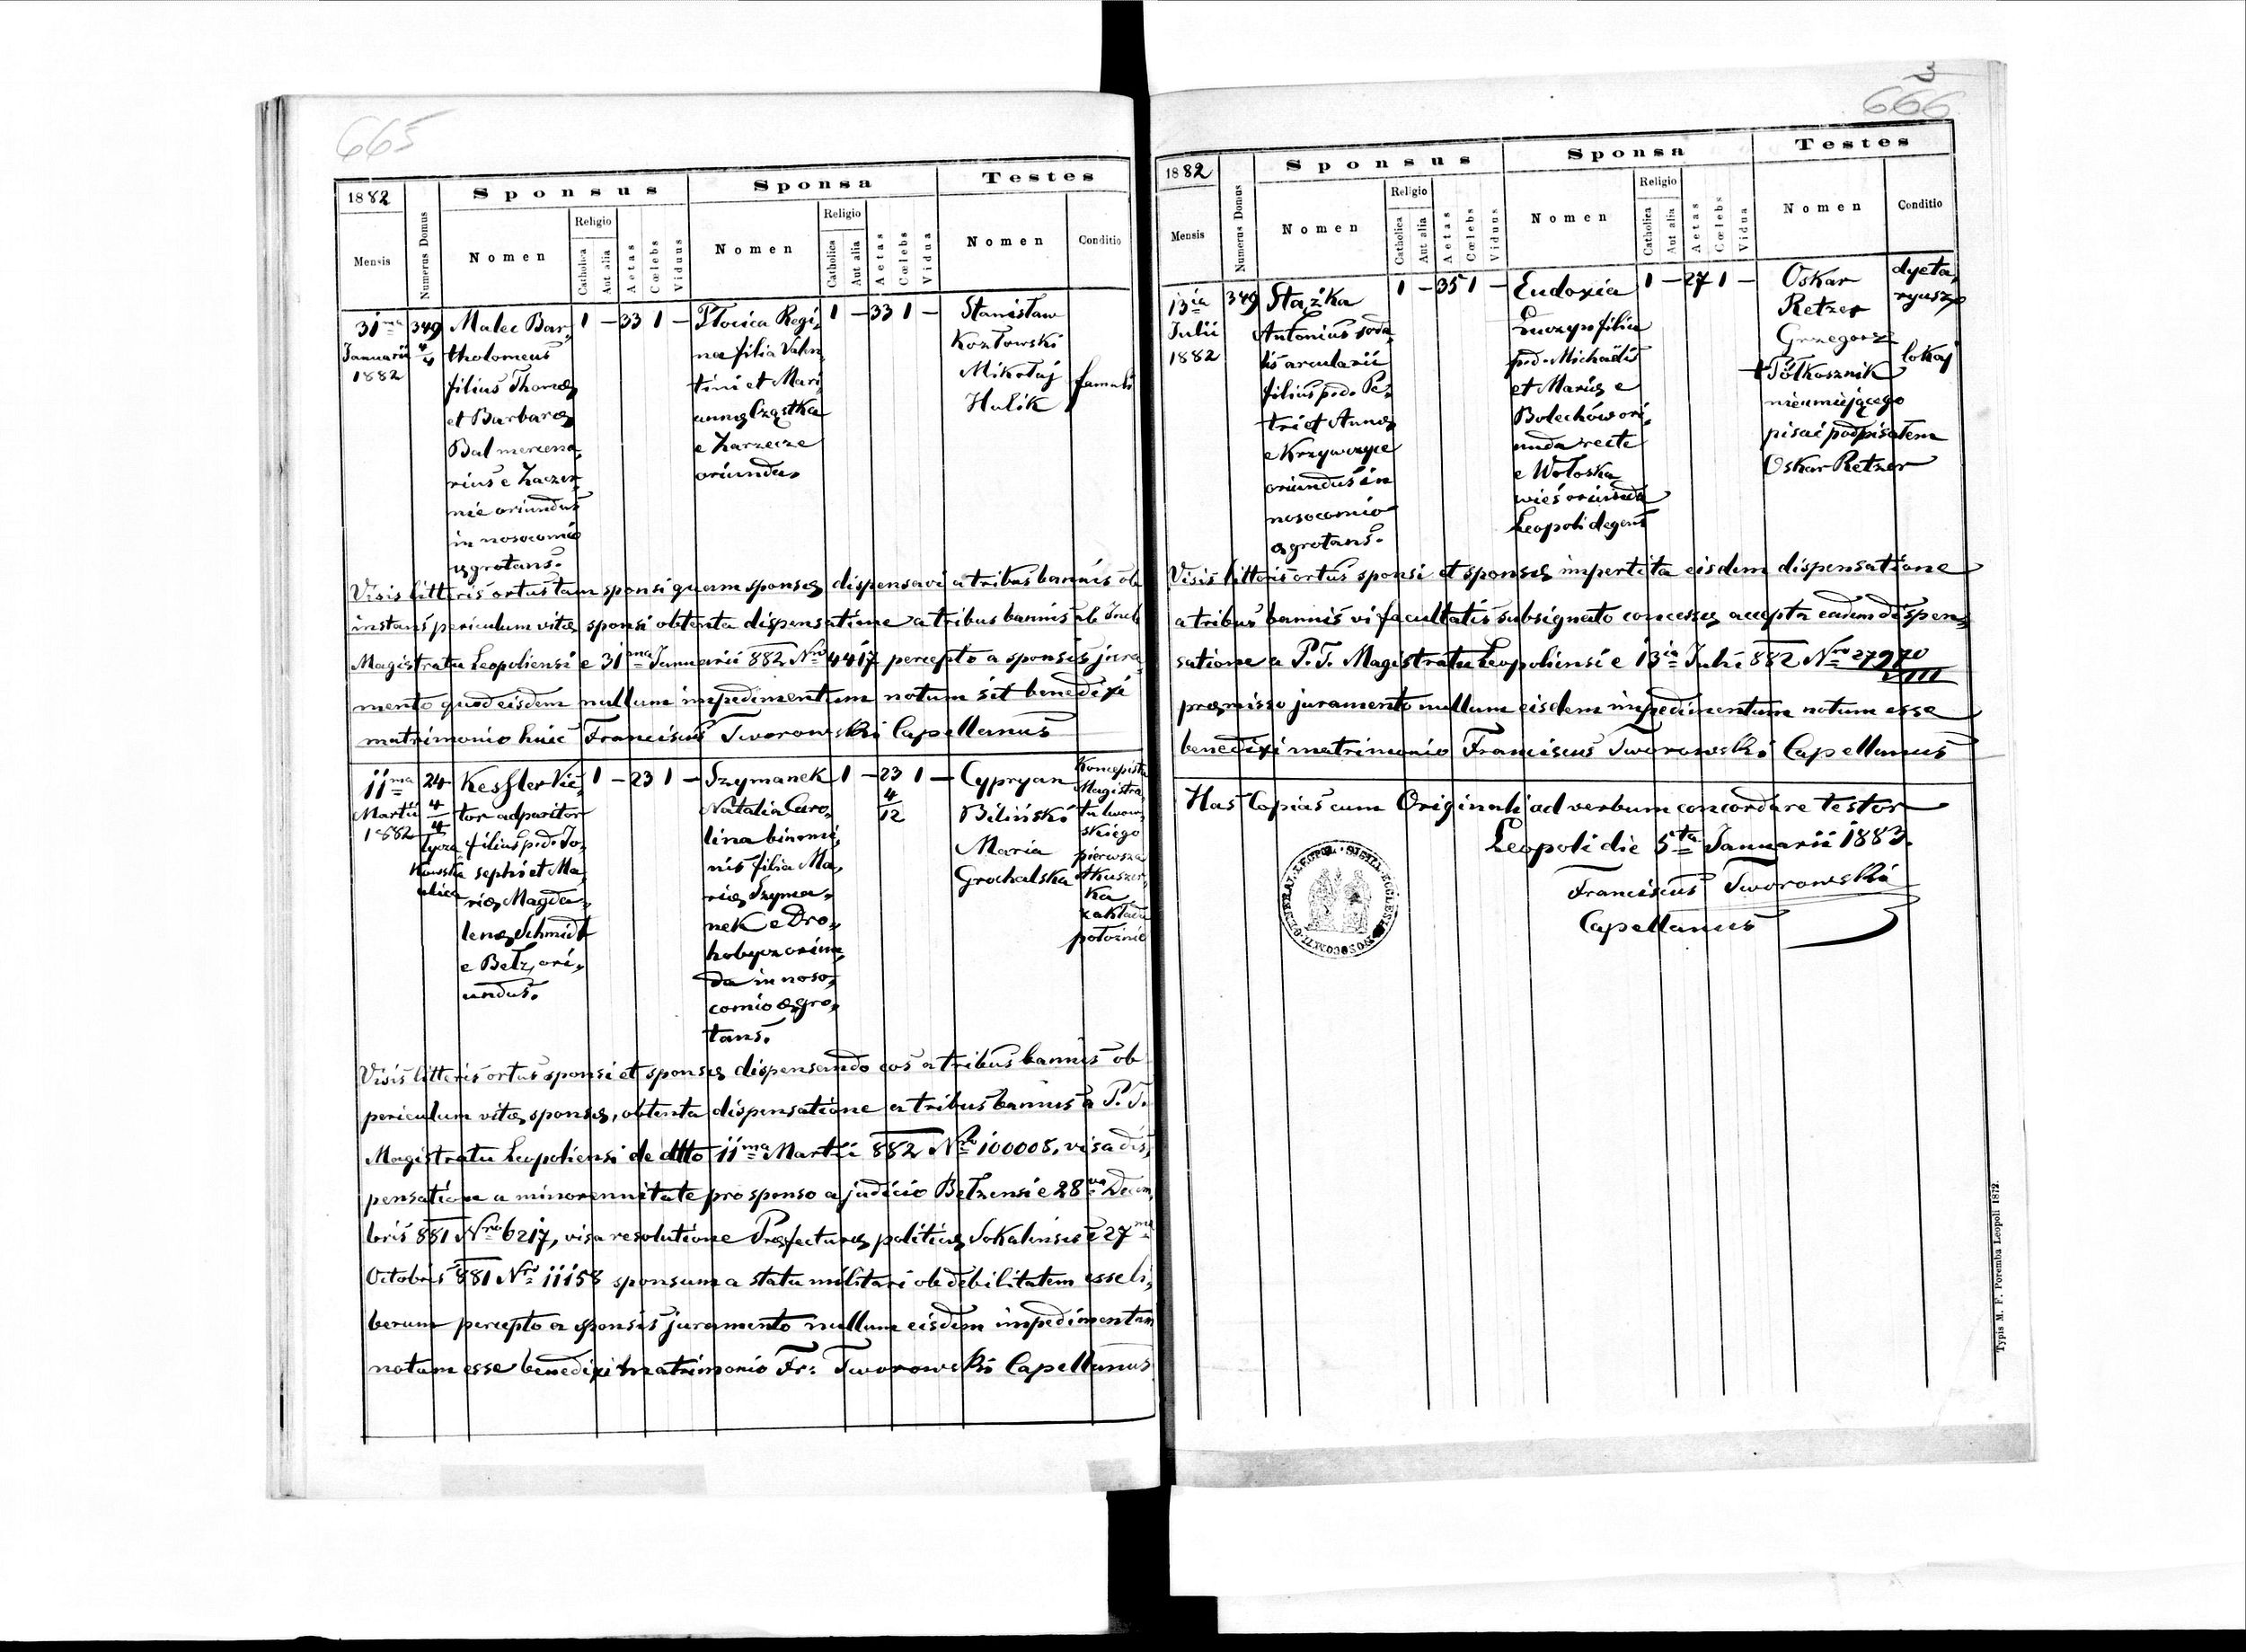 665
1882
Mensis
Numerus Domus
Sponsus
Nomen
Religio
Catholica
Aut alia
Aetas
Cœlebs
Viduus
Sponsa
Nomen
Religio
Catholica
Aut alia
Aetas
Cœlebs
Vidua
Testes
Nomen
Conditio
31ma
Januarii
1882
349
4/4
Malec Bar,
tholomeus
filius Thomæ
et Barbaræ
Bal mercena,
rius e Zaczer,
nie oriundus
in nosocomio
ægrotans.
1 – 33 1 –
Płocica Regi,
na filia Valen,
tini et Mari,
annæ Cząstka
e Zarzecze
oriunda.
1 – 33 1 –
Stanisław
Kozłowski
Mikołaj
Hulik
famuli
Visis litteris ortus tam sponsi quam sponsæ dispensavi a tribus bannis ob
instans periculum vitæ sponsi obtenta dispensatione a tribus bannis ab Incl.
Magistratu Leopoliensi e 31ma Januarii 882 Nro 4417 percepto a sponsis jura,
mento quod eisdem nullum impedimentum notum sit benedixi
matrimonio huic Franciscus Tworowski Capellanus
11ma
Martii
1882
24
4/4
Łycza
kowska
ulica
Kessler Vic,
tor adparitor
filius p.d. Jo,
sephi et Ma,
riæ Magda,
lenæ Schmidt
e Bełz, ori,
undus.
1 – 23 1 –
Szymanek
Natalia Caro,
lina binomi,
nis filia Ma,
riæ Szyma,
nek e Dro,
hobycz oriun,
da in noso,
comio ægro,
tans.
1 – 23 1 –
4/12
Cypryan
Biliński
Maria
Grochalska
Koncepista
Magistra,
tu lwow,
skiego
pierwsza
Akuszer,
ka
zakładu
położnic
Visis litteris ortus sponsi et sponsæ dispensando eos a tribus bannis ob
periculum vitæ sponsæ, obtenta dispensatione a tribus bannis a P. T.
Magistratu Leopoliensi de dtto 11ma Martii 882 Nro 100008, visa dis,
pensatione a minorennitate pro sponso a judicio Bełzensi e 28va Decem,
bris 881 Nro 6217, visa resolutione Præfecturæ politicæ Sokaliensis e 27ma
Octobris 881 Nro 11158 sponsum a statu militari ob debilitatem esse li,
berum percepto a sponsis juramento nullum eisdem impedimentum
notum esse benedixi matrimonio Fr: Tworowski Capellanus
3
666
1882
Mensis
Numerus Domus
Sponsus
Nomen
Religio
Catholica
Aut alia
Aetas
Cœlebs
Viduus
Sponsa
Nomen
Religio
Catholica
Aut alia
Aetas
Cœlebs
Vidua
Testes
Nomen
Conditio
13ia
Julii
1882
349
Stążka
Antonius soda,
lis arcularii
filius p.d. Pe,
tri et Annæ
e Krzywczyce
oriundus in
nosocomio
ægrotans.
1 – 35 1 –
Eudoxia
Łuczyn filia
p.d. Michaëlis
et Mariæ e
Bolechów ori,
unda recte
e Wołoska
wieś oriunda
Leopoli degens
1 – 27 1 –
Oskar
Retzer
Grzegorz
+ Półkosznik
nieumiejącego
pisać podpisałem
Oskar Retzer
dyeta,
ryusz
lokaj
Visis litteris ortus sponsi et sponsæ impertita eisdem dispensatione
a tribus bannis vi facultatis subsignato concessæ accepta eadem dispen,
satione a P. T. Magistratu Leopoliensi e 13ia Julii 882 Nro 27970
VIII
præmisso juramento nullum eisdem impedimentum notum esse
benedixi matrimonio Franciscus Tworowski Capellanus
Has Copias cum Originali ad verbum concordare testor
Leopoli die 5ta Januarii 1883.
Franciscus Tworowski
Capellanus
Typis M. F. Poremba Leopoli 1872.